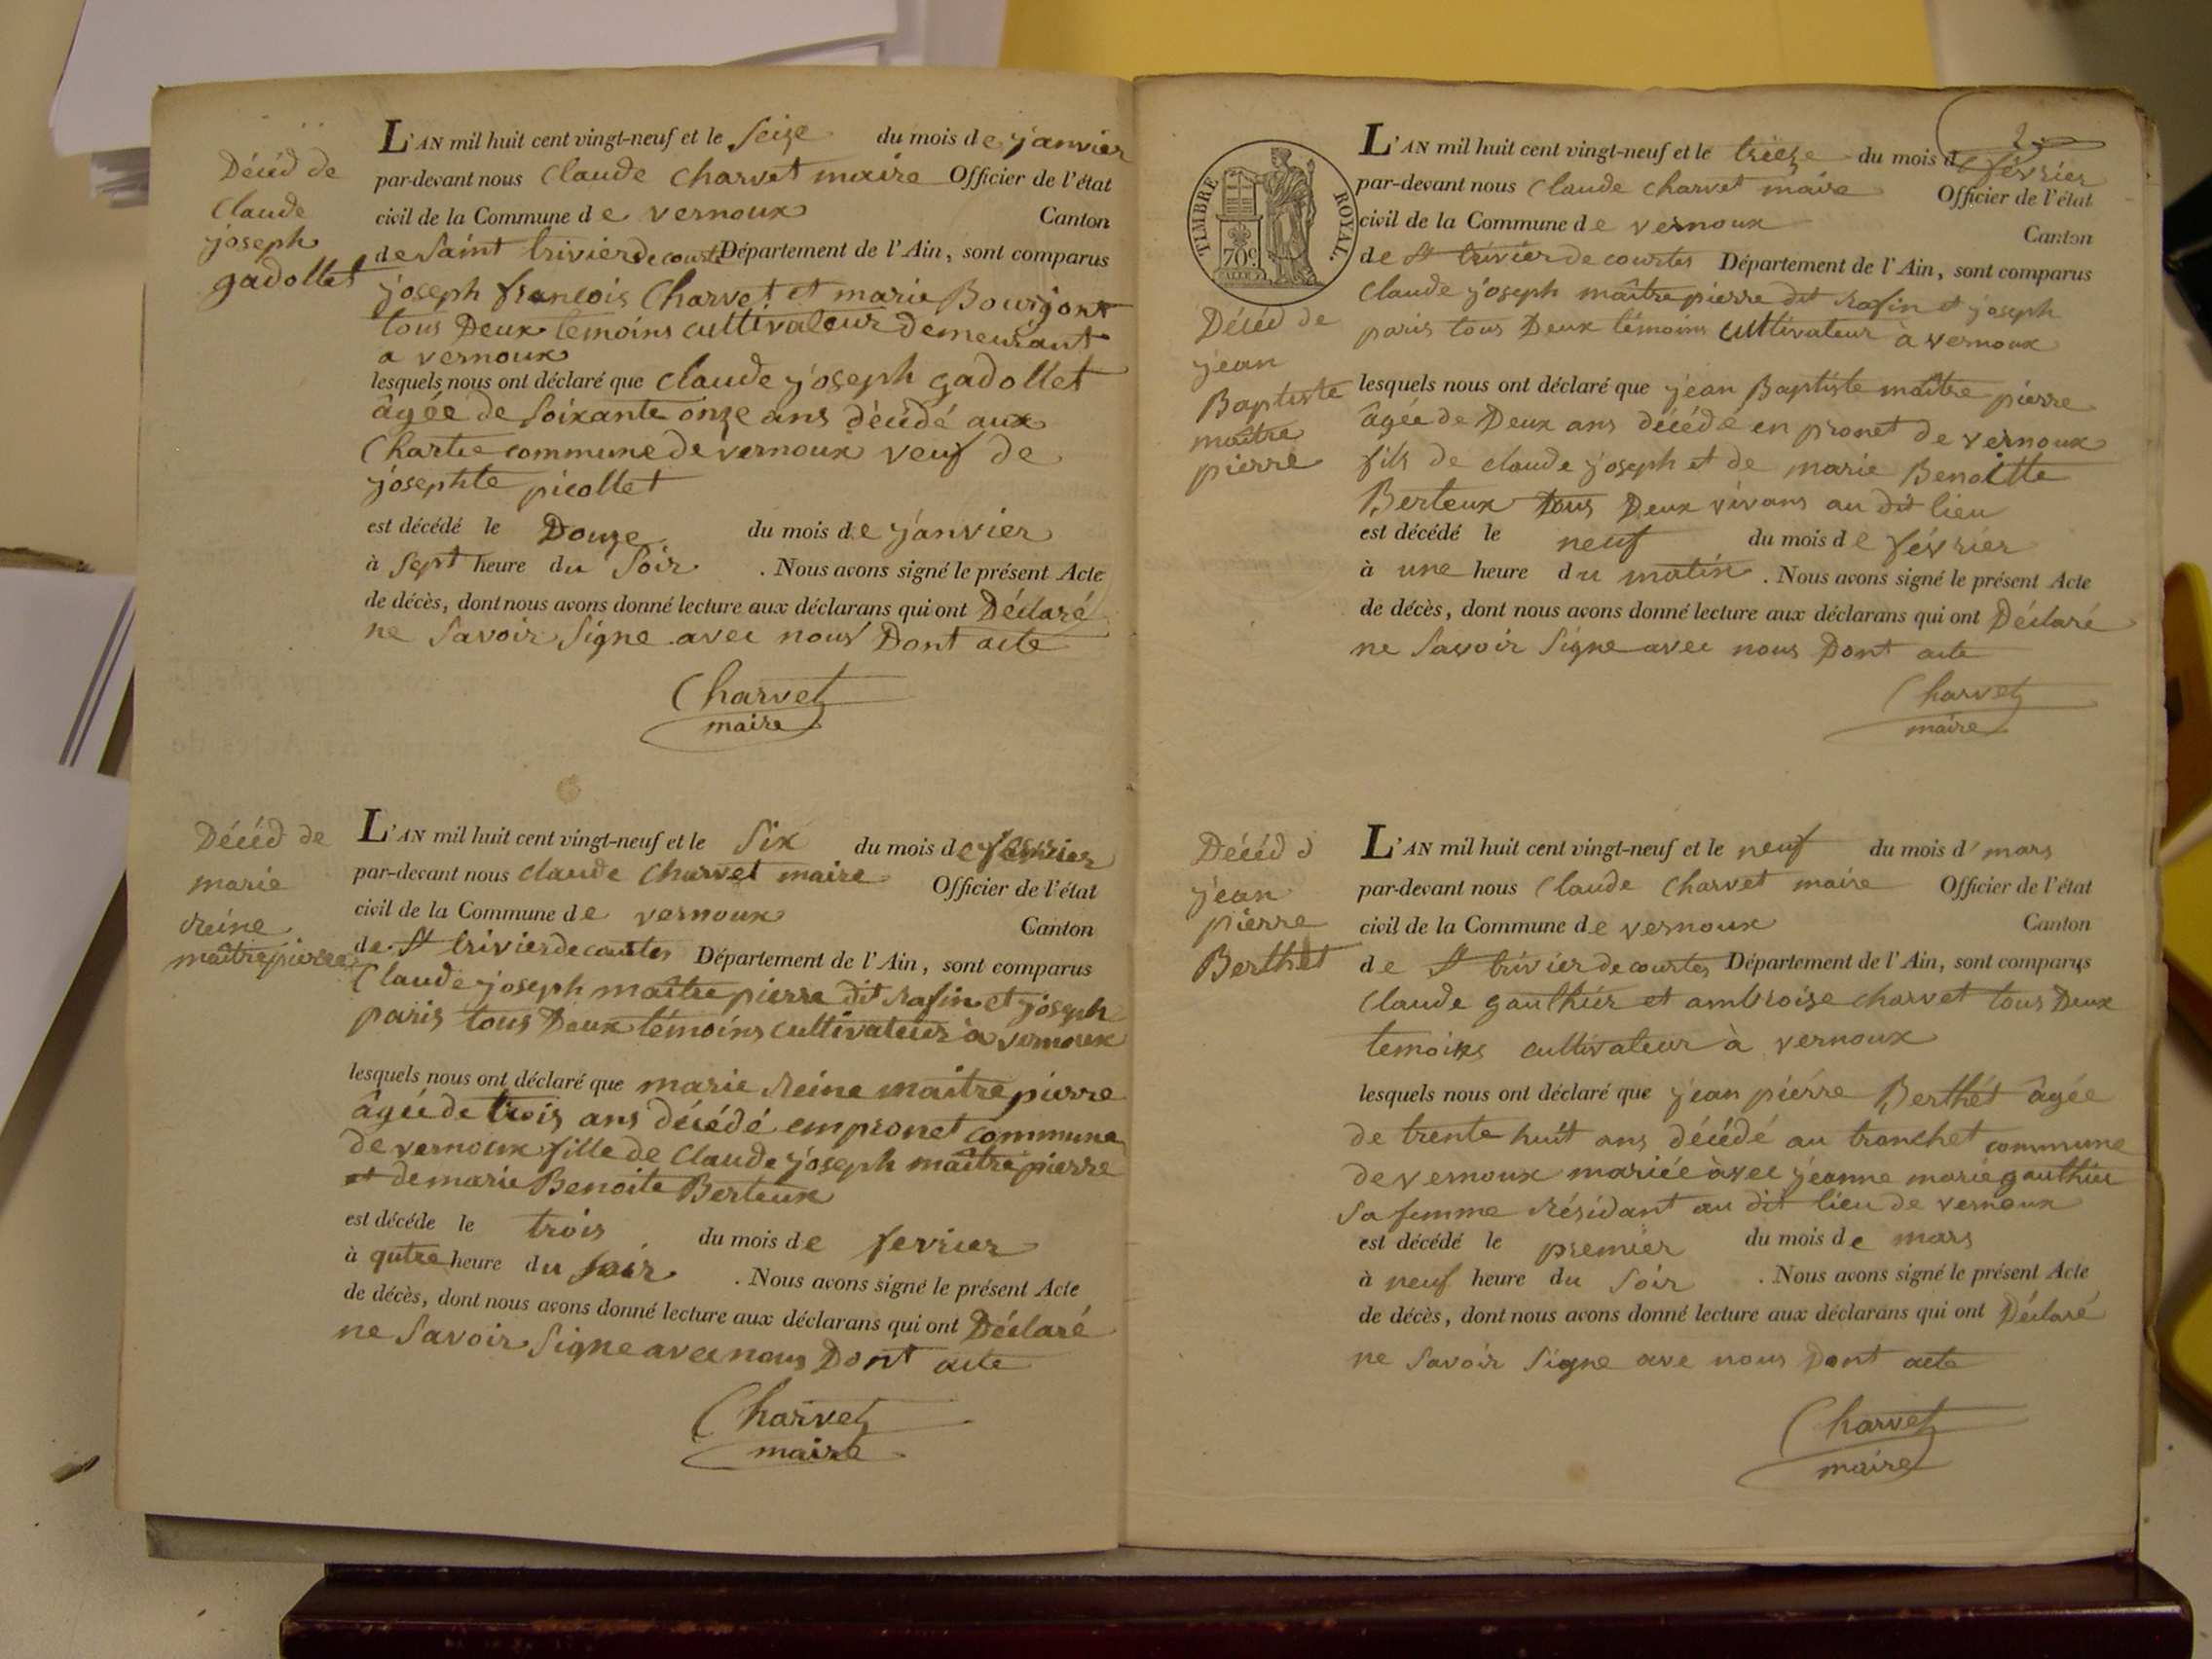 Décéd de
Claude
joseph
gadollet
L'AN mil huit cent vingt-neuf et le seize du mois de janvier
par-devant nous Claude Charvet maire Officier de l'état
civil de la Commune de vernoux Canton
de saint trivier de courtes Département de l'Ain, sont comparus
joseph francois Charvet et marie Bourjon
tous Deux temoins cultivateur demeurant
a vernoux
lesquels nous ont déclaré que Claude joseph gadollet
âgée de soixante onze ans décédé aux
Chartre commune de vernoux veuf de
josephte picollet
est décédé le Douze du mois de janvier
à sept heure du soir . Nous avons signé le présent Acte
de décès, dont nous avons donné lecture aux déclarans qui ont Déclaré
ne savoir signe avec nous Dont acte
Charvet
maire
Décéd de
marie
reine
maîtrepierre
L'AN mil huit cent vingt-neuf et le six du mois de fevrier
par-devant nous claude Charvet maire Officier de l'état
civil de la Commune de vernoux Canton
de St trivier de courtes Département de l'Ain, sont comparus
Claude joseph maîtrepierre dit rafin et joseph
paris tous Deux témoins cultivateur à vernoux
lesquels nous ont déclaré que marie reine maitre pierre
âgée de trois ans décédé en pronet commune
de vernoux fille de Claude joseph maîtrepierre
et de marie Benoite Berteux
est décéde le trois du mois de fevrier
à qutre heure du soir . Nous avons signé le présent Acte
de décès, dont nous avons donné lecture aux déclarans qui ont Déclaré
ne savoir signe avec nous Dont acte
Charvet
maire
2
TIMBRE ROYAL.
70c.
Décéd de
jean
Baptiste
maître
pierre
L'AN mil huit cent vingt-neuf et le trieze du mois de février
par-devant nous Claude Charvet maire Officier de l'état
civil de la Commune de vernoux Canton
de St trivier de courtes Département de l'Ain, sont comparus
Claude joseph maîtrepierre dit rafin et joseph
paris tous Deux témoins cultivateur à vernoux
lesquels nous ont déclaré que jean Baptiste maître pierre
âgée de Deux ans décédé en pronet de vernoux
fils de claude joseph et de marie Benoitte
Berteux tous Deux vivans au dit lieu
est décédé le neuf du mois de février
à une heure du matin . Nous avons signé le présent Acte
de décès, dont nous avons donné lecture aux déclarans qui ont Déclaré
ne savoir signe avec nous Dont acte
Charvet
maire
Décéd d
jean
pierre
Berthet
L'AN mil huit cent vingt-neuf et le neuf du mois d' mars
par-devant nous Claude Charvet maire Officier de l'état
civil de la Commune de vernoux Canton
de St trivier de courtes Département de l'Ain, sont comparus
Claude gauthier et ambroise charvet tous Deux
temoins cultivateur à vernoux
lesquels nous ont déclaré que jean pierre Berthét âgée
de trente huit ans décédé au tronchet commune
de vernoux mariée avec jeanne marie gauthier
sa femme résidant au dit lieu de vernoux
est décédé le premier du mois de mars
à neuf heure du soir . Nous avons signé le présent Acte
de décès, dont nous avons donné lecture aux déclarans qui ont Déclaré
ne savoir signe ave nous Dont acte
Charvet
maire